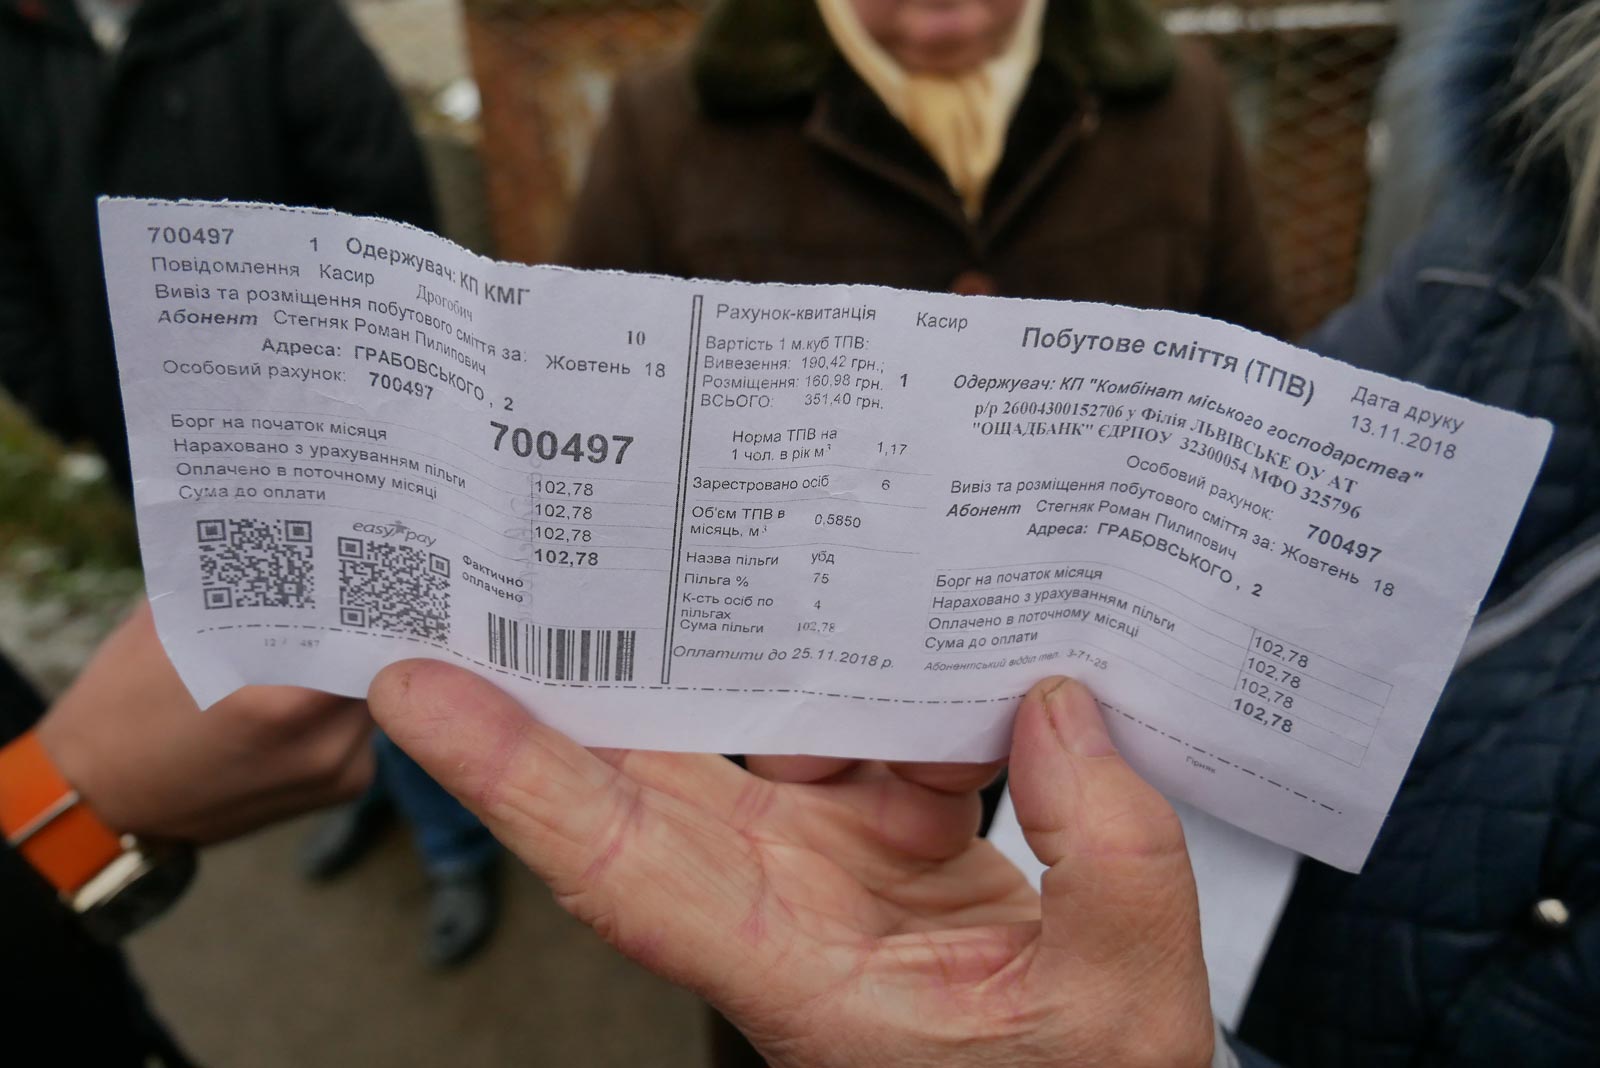 700497 1 Одержувач: КП КМГ
Повідомлення Касир Дрогобич
Вивіз та розміщення побутового сміття за: 10 Жовтень 18
Абонент Стегняк Роман Пилипович
Адреса: ГРАБОВСЬКОГО, 2
Особовий рахунок: 700497
700497
Борг на початок місяця 102,78
Нараховано з урахуванням пільги 102,78
Оплачено в поточному місяці 102,78
Сума до оплати 102,78
easypay
Фактично
оплачено
12 / 497
Рахунок-квитанція Касир
Вартість 1 м.куб ТПВ:
Вивезення: 190,42 грн.;
Розміщення: 160,98 грн. 1
ВСЬОГО: 351,40 грн.
Норма ТПВ на
1 чол. в рік м³ 1,17
Зарестровано осіб 6
Об'єм ТПВ в
місяць, м³ 0,5850
Назва пільги убд
Пільга % 75
К-сть осіб по
пільгах 4
Сума пільги 102,78
Оплатити до 25.11.2018 р.
Побутове сміття (ТПВ)
Дата друку
13.11.2018
Одержувач: КП "Комбінат міського господарства"
р/р 26004300152706 у Філія ЛЬВІВСЬКЕ ОУ АТ
"ОЩАДБАНК" ЄДРПОУ 32300054 МФО 325796
Особовий рахунок: 700497
Вивіз та розміщення побутового сміття за: Жовтень 18
Абонент Стегняк Роман Пилипович
Адреса: ГРАБОВСЬКОГО, 2
Борг на початок місяця 102,78
Нараховано з урахуванням пільги 102,78
Оплачено в поточному місяці 102,78
Сума до оплати 102,78
Абонентський відділ тел. 3-71-25
Гірняк